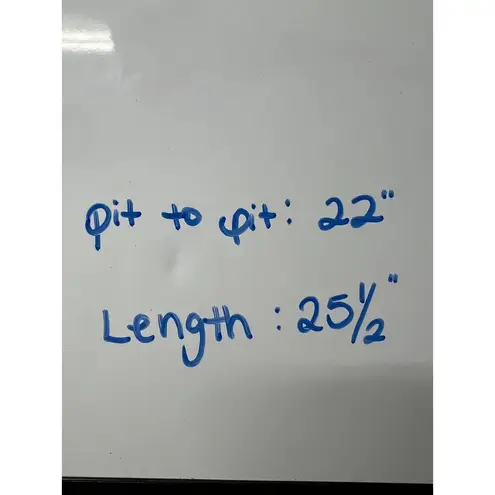 pit to pit: 22"
Length: 25 1/2"